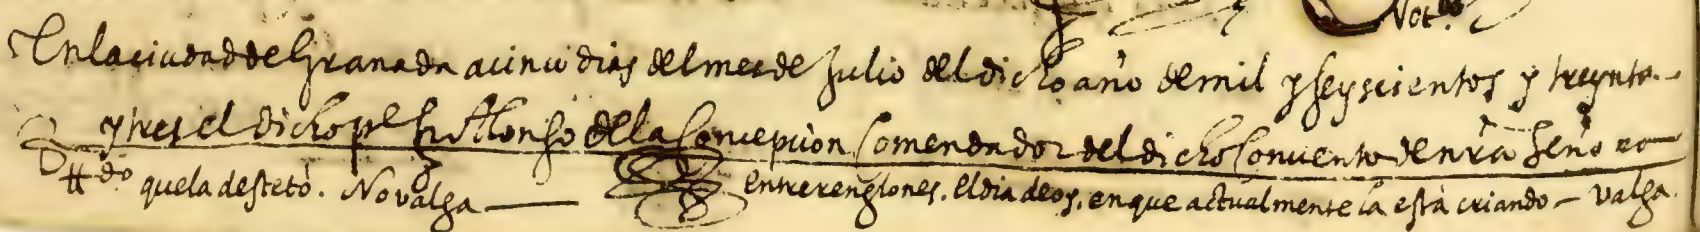 Not.º
En la ciudad de Granada a cinco dias del mes de Julio del dicho año de mil y seyscientos y treynta
y tres el dicho pe fr Alonso de la Concepcion Comendador del dicho Conuento de nra Seño ra
do que la desteto. No valga entre renglones. El dia de oy. en que actualmente la està criando – valga.